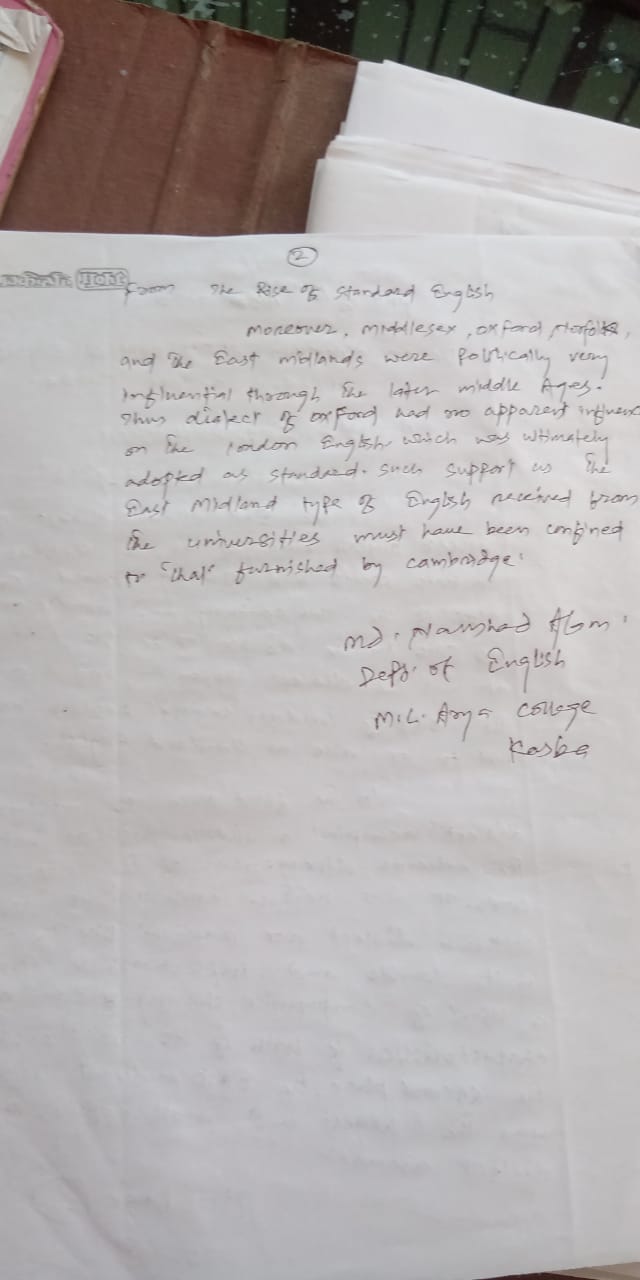 2
From The Rise of Standard English
Moreover, Middlesex, Oxford, Norfolk,
and the East midlands were Politically very
influential through the later middle Ages.
Thus dialect of Oxford had no apparent influenc
on the London English which was ultimately
adopted as standard. Such support as the
East Midland type of English received from
the universities must have been confined
to "that" furnished by Cambridge.
Md. Naushad Alam.
Dept. of English
M.L. Arya College
Kasba